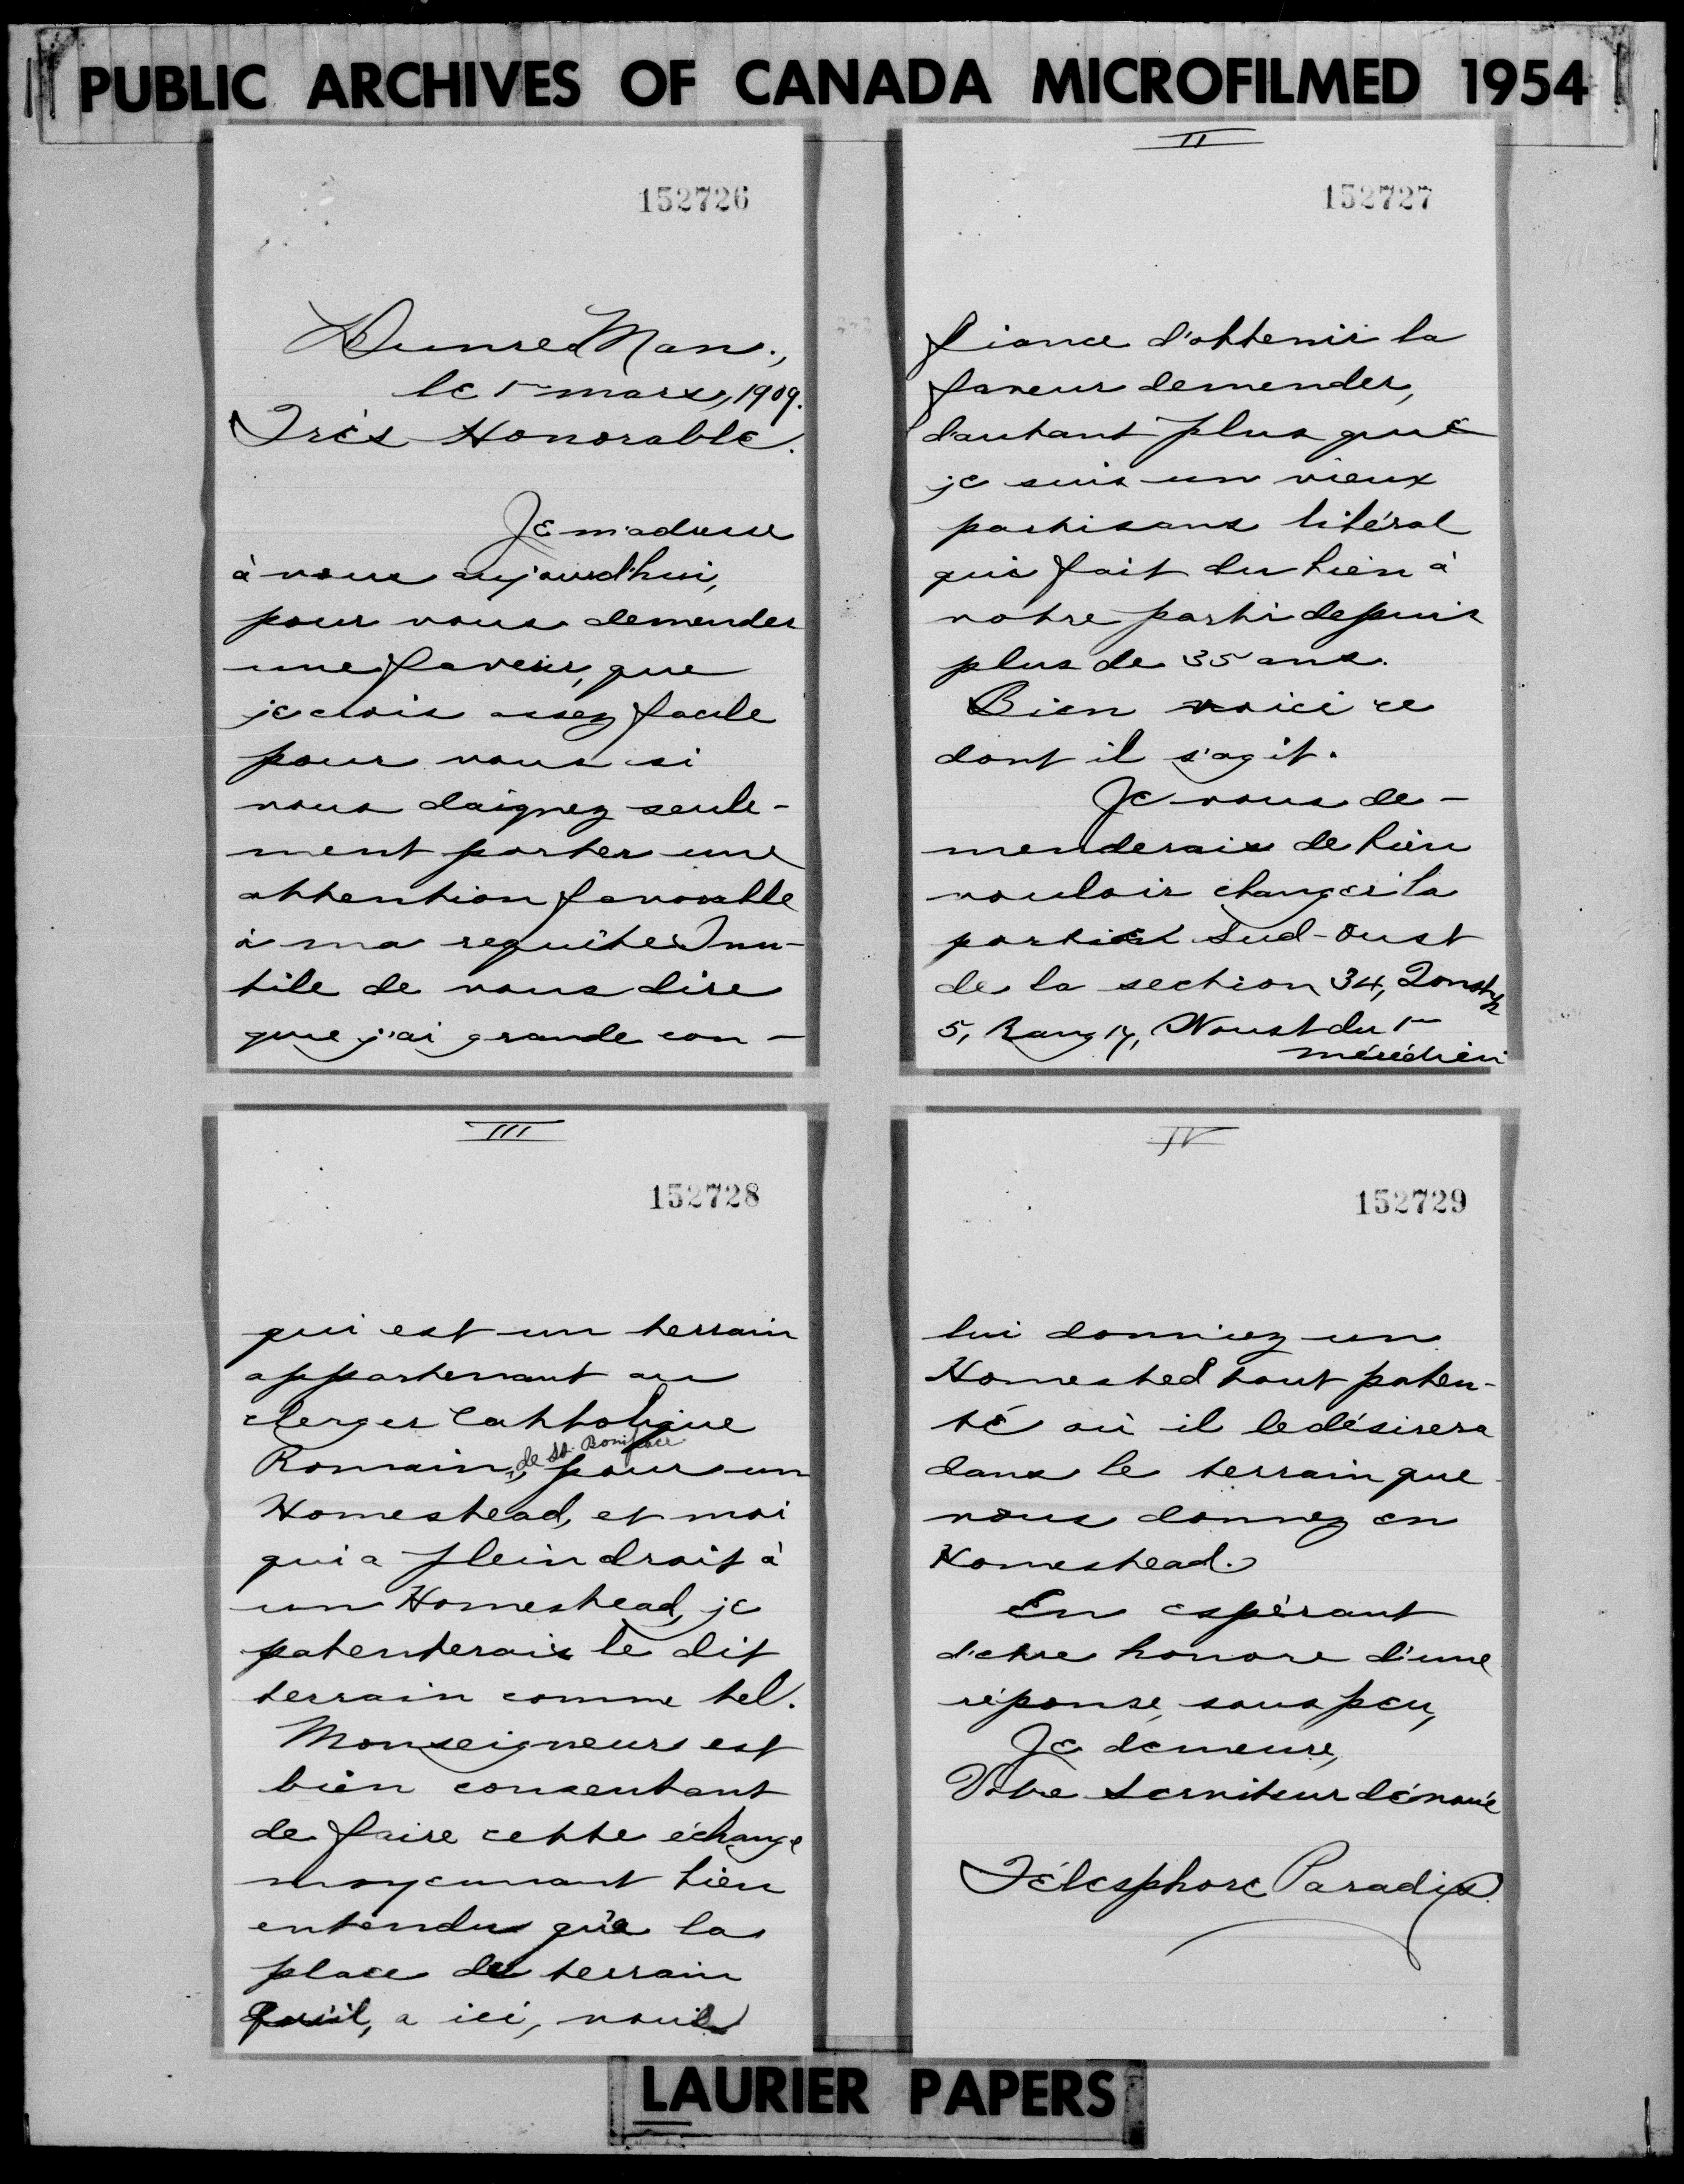 PUBLIC ARCHIVES OF CANADA MICROFILMED 1954
152726
Dunrea Man.,
le 1er mars, 1909.
Très Honorable.
Je m'adresse
à vous aujourd'hui,
pour vous demender
une faveur, que
je crois assez facile
pour vous si
vous daignez seule-
ment porter une
attention favorable
à ma requête. Inu-
tile de vous dire
que j'ai grande con-
II
152727
fiance d'obtenir la
faveur demender,
d'autant plus que
je suis un vieux
partisans libéral
qui fait du bien à
notre parti depuis
plus de 35 ans.
Bien voici ce
dont il s'agit.
Je vous de-
menderais de bien
vouloir changer la
partie Sud-Oust
de la section 34,
5, Rang 17, Woust du 1er
mérédien
III
152728
qui est un terrain
appartenant au
clerger Catholique
Romain, de St. Boniface pour un
Homestead, et moi
qui a plein droit à
un Homestead, je
patenterais le dit
terrain comme tel.
Monseigneur est
bien consentant
de faire cette échange
moyennant bien
entendu qu'a la
place du terrain
qu'il, a ici, vous
IV
152729
lui donniez un
Homested tout paten-
té où il le désirera
dans le terrain que
vous donnez en
Homestead.
En espérant
d'etre honore d'une
réponse, sous peu,
Je demeure,
Votre Serviteur dévoué
Télesphore Paradis.
LAURIER PAPERS